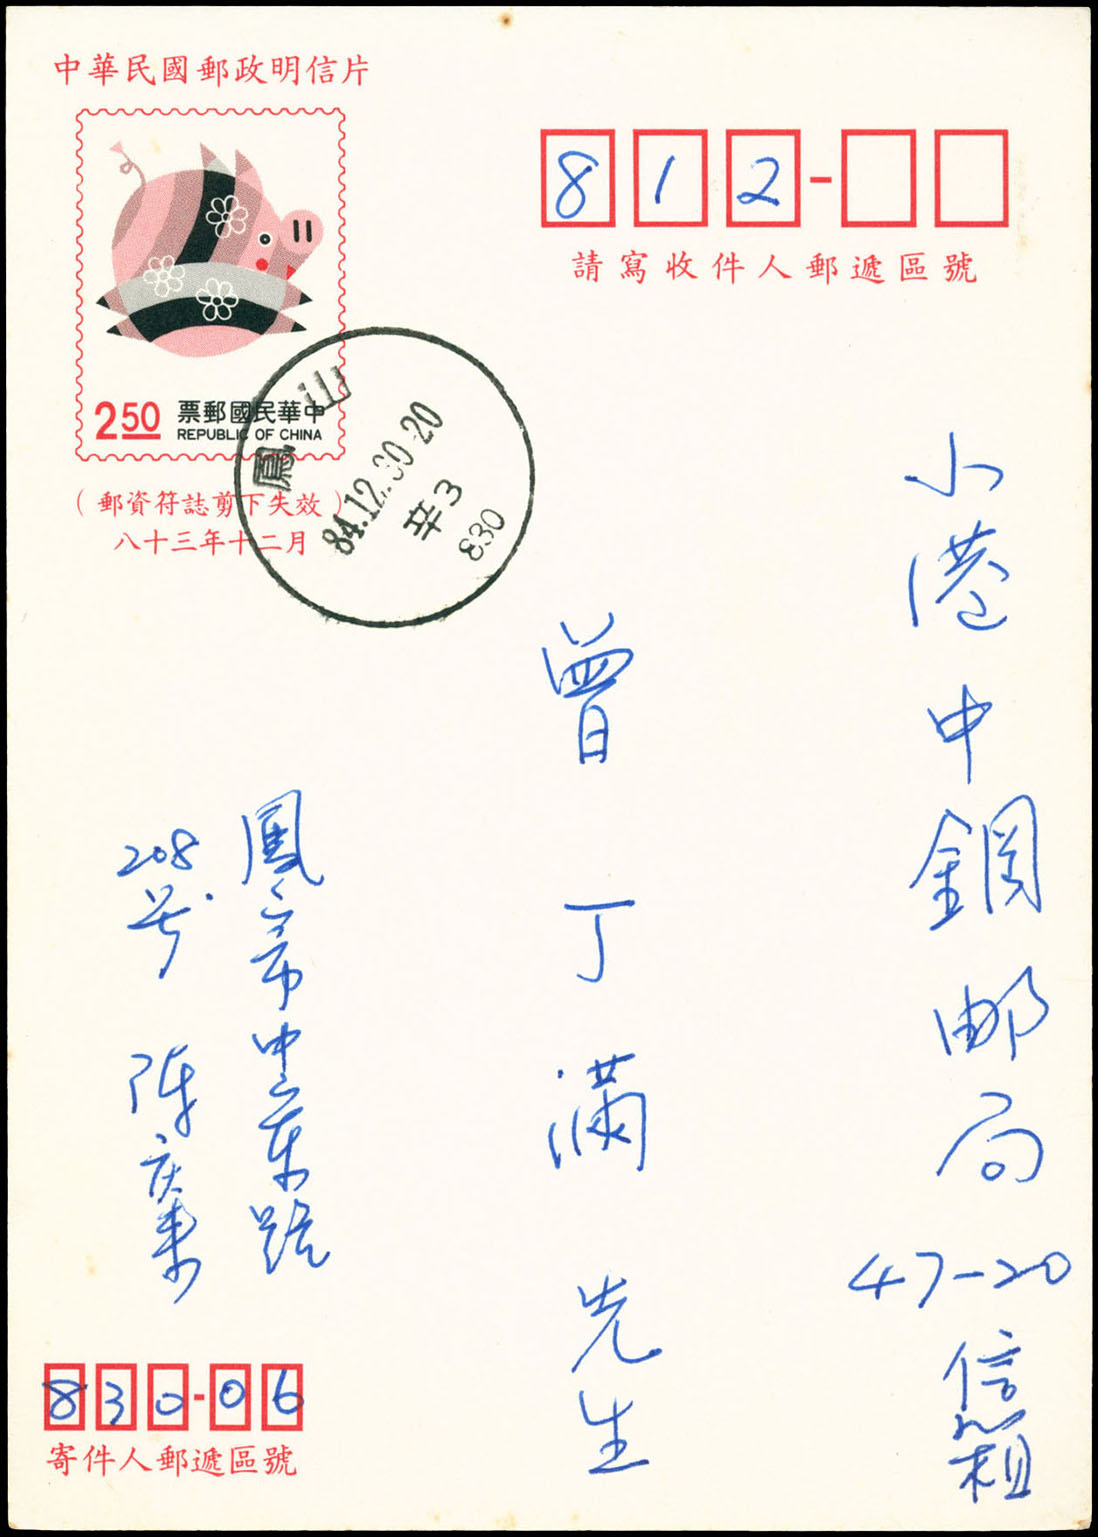 中華民國郵政明信片
2.50
中華民國郵票
REPUBLIC OF CHINA
(郵資符誌剪下失效)
八十三年十二月
鳳山
84.12.30-20
辛3
830
812-
請寫收件人郵遞區號
小港中鋼邮局 47-20 信箱
曾丁滿 先生
鳳山市中山東路
208号 陳庆
830-06
寄件人郵遞區號